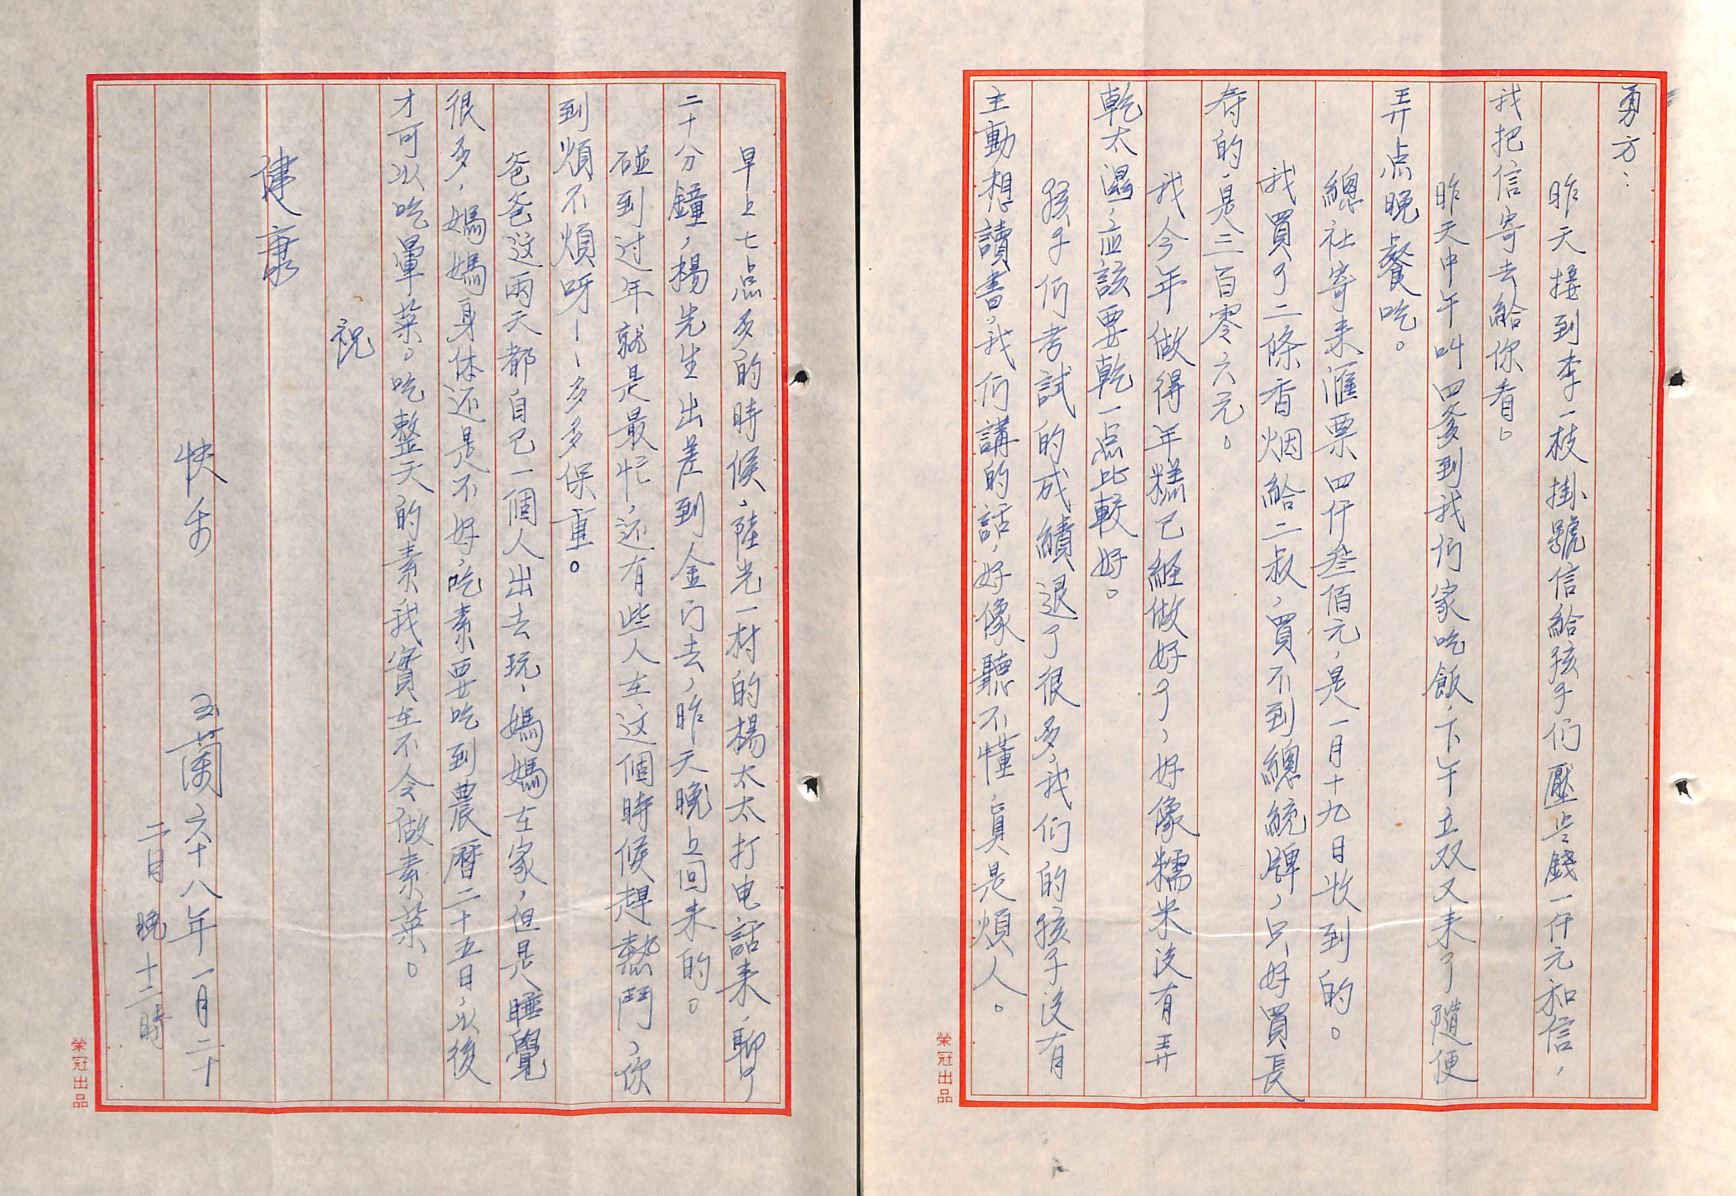 勇方：
昨天接到李一枝掛號信給孩子们壓岁錢一仟元和信，
我把信寄去給你看。
昨天中午叫四爹到我们家吃飯，下午立双又来了隨便
弄点晚餐吃。
總社寄来滙票四仟叁佰元，是一月十九日收到的。
我買了二條香烟給二叔，買不到總統牌，只好買長
寿的，是三百零六元。
我今年做得年糕已經做好了，好像糯米没有弄
乾太濕，应該要乾一点比較好。
孩子们考試的成績退了很多，我们的孩子没有
主動想讀書，我们講的話，好像聽不懂，真是煩人。
早上七点多的時候，陸光一村的楊太太打电話来，聊了
二十八分鐘，楊先生出差到金门去，昨天晚上回来的。
碰到过年就是最忙，还有些人在这個時候趕熱鬥，你
到煩不煩呀！！多多保重。
爸爸这兩天都自己一個人出去玩，媽媽在家，但是睡覺
很多，媽媽身体还是不好，吃素要吃到農曆二十五日，以後
才可以吃葷菜。吃整天的素我實在不会做素菜。
祝
健康
快乐
玉蘭六十八年一月二十
二日晚十二時
榮冠出品
榮冠出品